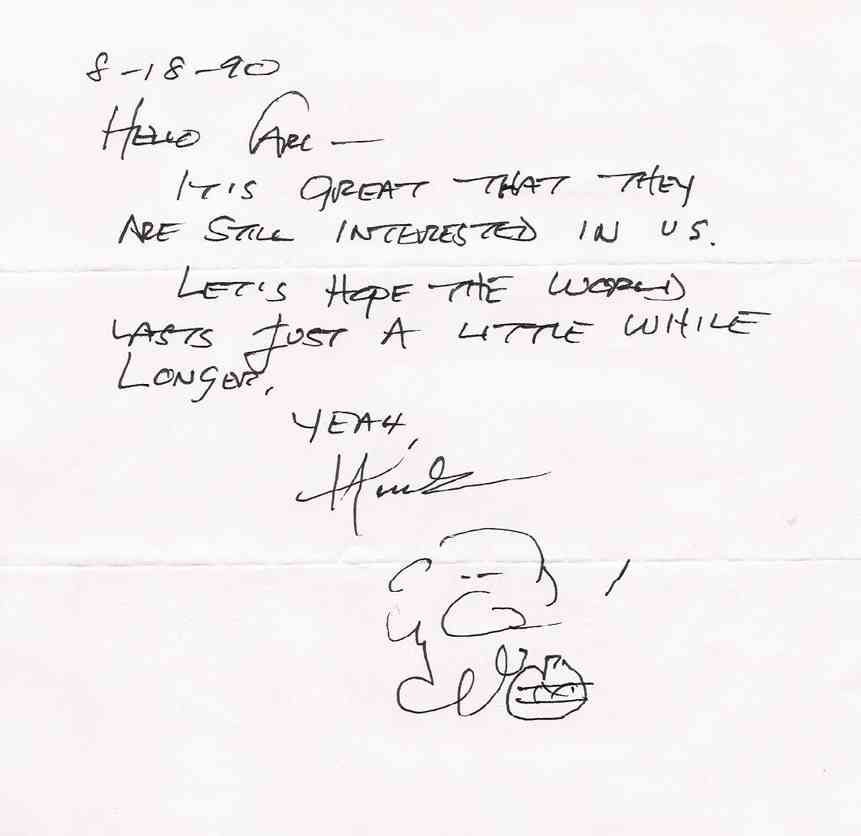 8-18-90
HELLO CARL —
IT'S GREAT THAT THEY
ARE STILL INTERESTED IN US.
LET'S HOPE THE WORLD
LASTS JUST A LITTLE WHILE
LONGER.
YEAH,
Hank